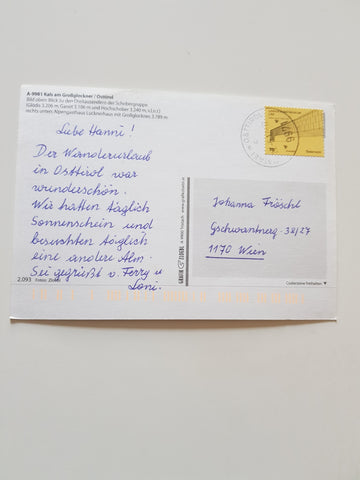 A-9981 Kals am Großglockner / Osttirol
Bild oben: Blick zu den Dreitausendern der Schobergruppe
(Glödis 3.206 m, Ganot 3.106 m und Hochschober 3.240 m, v.l.n.r.)
rechts unten: Alpengasthaus Lucknerhaus mit Großglockner, 3.789 m
Liebe Hanni!
Der Wanderurlaub
in Osttirol war
wunderschön.
Wir hatten täglich
Sonnenschein und
besuchten täglich
eine andere Alm.
Sei gegrüßt v. Ferry u
Loni.
2.093
Fotos: Zlöbl
GRAFIK ZLOEBL
A-9900 Tristach
Johanna Fröschl
Gschwandnerg. 38/27
1170 Wien
Codierzone freihalten ▼
9990